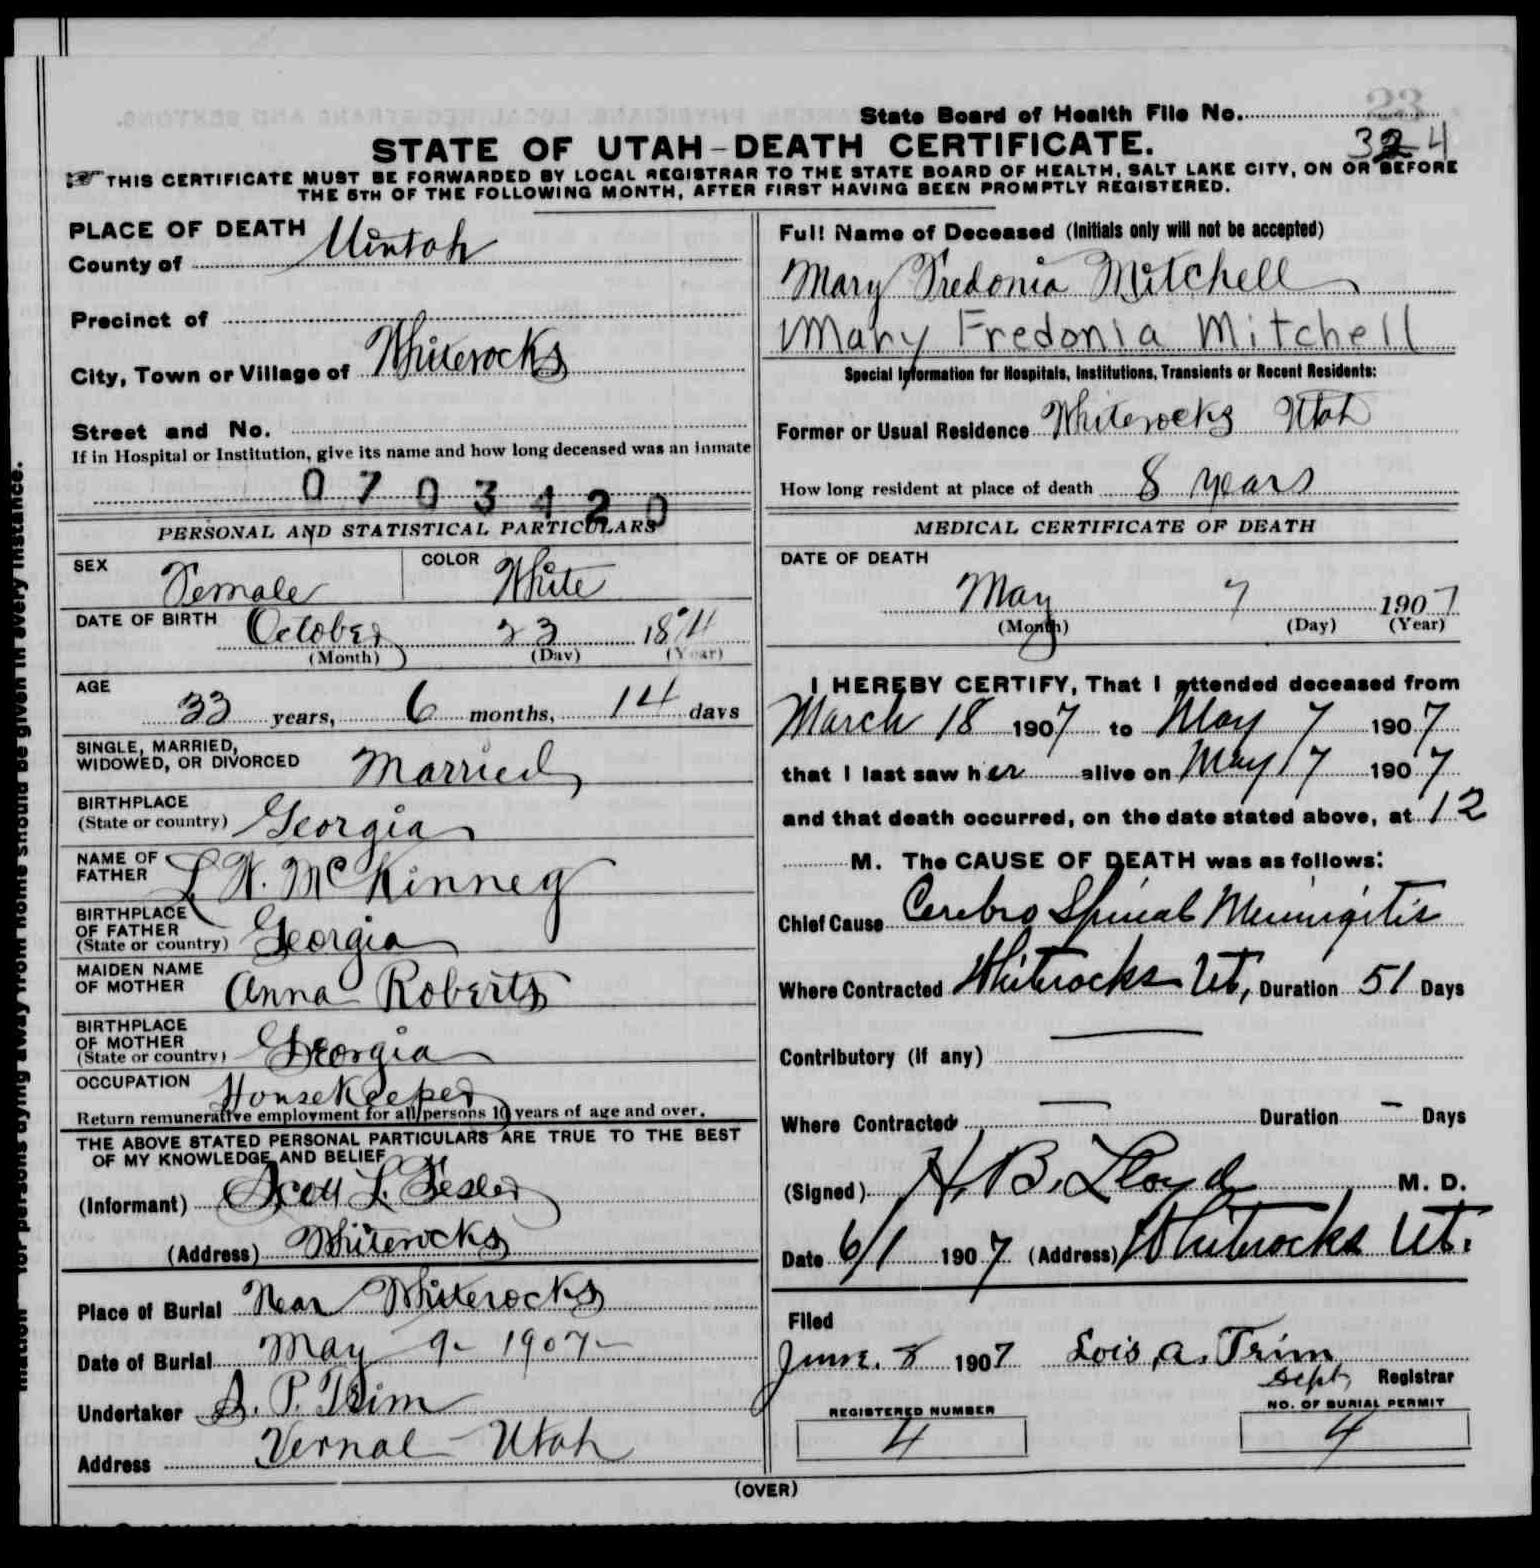 State Board of Health File No.
23
324
STATE OF UTAH-DEATH CERTIFICATE.
THIS CERTIFICATE MUST BE FORWARDED BY LOCAL REGISTRAR TO THE STATE BOARD OF HEALTH, SALT LAKE CITY, ON OR BEFORE
THE 5TH OF THE FOLLOWING MONTH, AFTER FIRST HAVING BEEN PROMPTLY REGISTERED.
PLACE OF DEATH
County of Uintah
Precinct of
City, Town or Village of Whiterocks
Street and No.
If in Hospital or Institution, give its name and how long deceased was an inmate
0703420
PERSONAL AND STATISTICAL PARTICULARS
SEX Female COLOR White
DATE OF BIRTH October 23 1874
(Month) (Day) (Year)
AGE
33 years, 6 months, 14 days
SINGLE, MARRIED,
WIDOWED, OR DIVORCED Married
BIRTHPLACE
(State or country) Georgia
NAME OF
FATHER L W. McKinney
BIRTHPLACE
OF FATHER
(State or country) Georgia
MAIDEN NAME
OF MOTHER Anna Roberts
BIRTHPLACE
OF MOTHER
(State or country) Georgia
OCCUPATION Housekeeper
Return remunerative employment for all persons 10 years of age and over.
THE ABOVE STATED PERSONAL PARTICULARS ARE TRUE TO THE BEST
OF MY KNOWLEDGE AND BELIEF
(Informant) Scott L.
(Address) Whiterocks
Place of Burial Near Whiterocks
Date of Burial May 9- 1907-
Undertaker S. P. Trim
Address Vernal - Utah
Full Name of Deceased (Initials only will not be accepted)
Mary Fredonia Mitchell
Mary Fredonia Mitchell
Special Information for Hospitals, Institutions, Transients or Recent Residents:
Former or Usual Residence Whiterocks Utah
How long resident at place of death 8 years
MEDICAL CERTIFICATE OF DEATH
DATE OF DEATH
May 7 1907
(Month) (Day) (Year)
I HEREBY CERTIFY, That I attended deceased from
March 18 1907 to May 7 1907
that I last saw her alive on May 7 1907
and that death occurred, on the date stated above, at 12
M. The CAUSE OF DEATH was as follows:
Chief Cause Cerebro Spinal Meningitis
Where Contracted Whiterocks Ut, Duration 51 Days
Contributory (if any)
Where Contracted Duration - Days
(Signed) H. B. Lloyd M. D.
Date 6/1 1907 (Address) Whiterocks Ut.
Filed
June. 8 1907 Lois A. Trim
Dept, Registrar
REGISTERED NUMBER
4
NO. OF BURIAL PERMIT
4
(OVER)